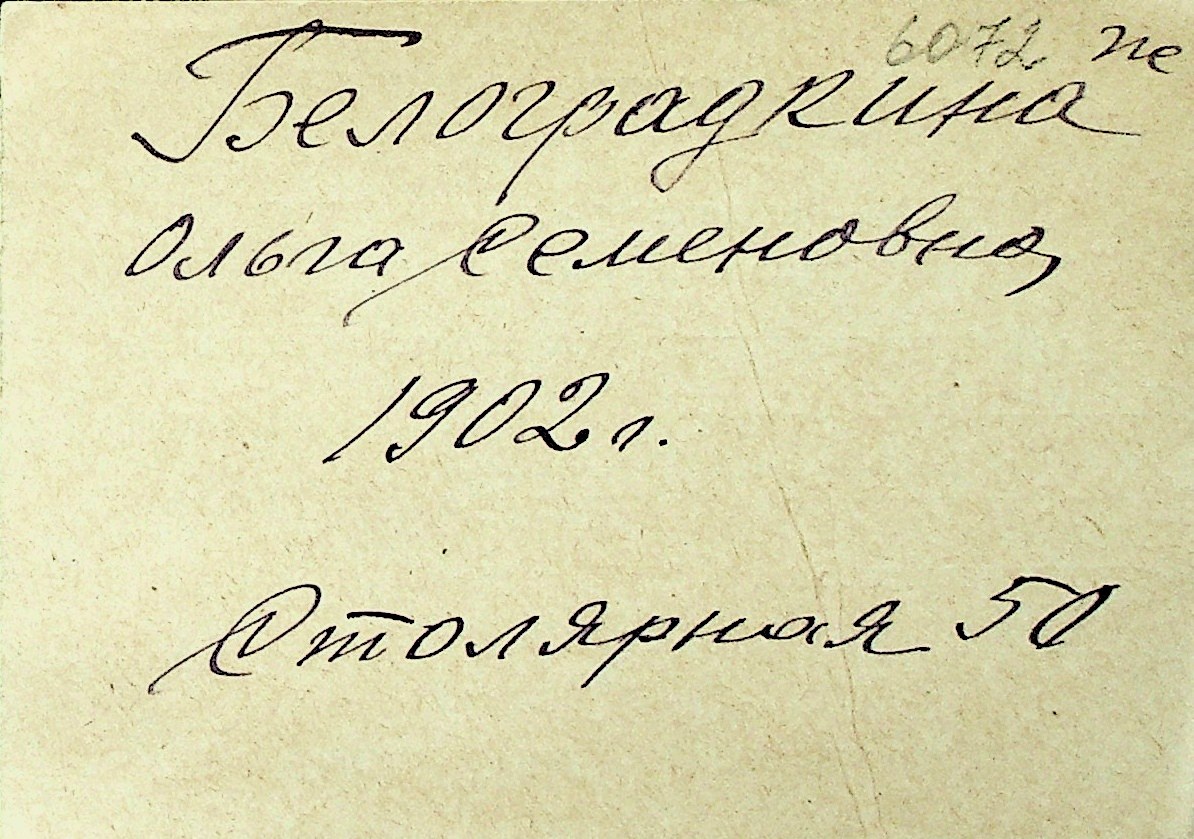 6072 пе
Белоградкина
Ольга Семеновна,
1902 г.
Столярная 50